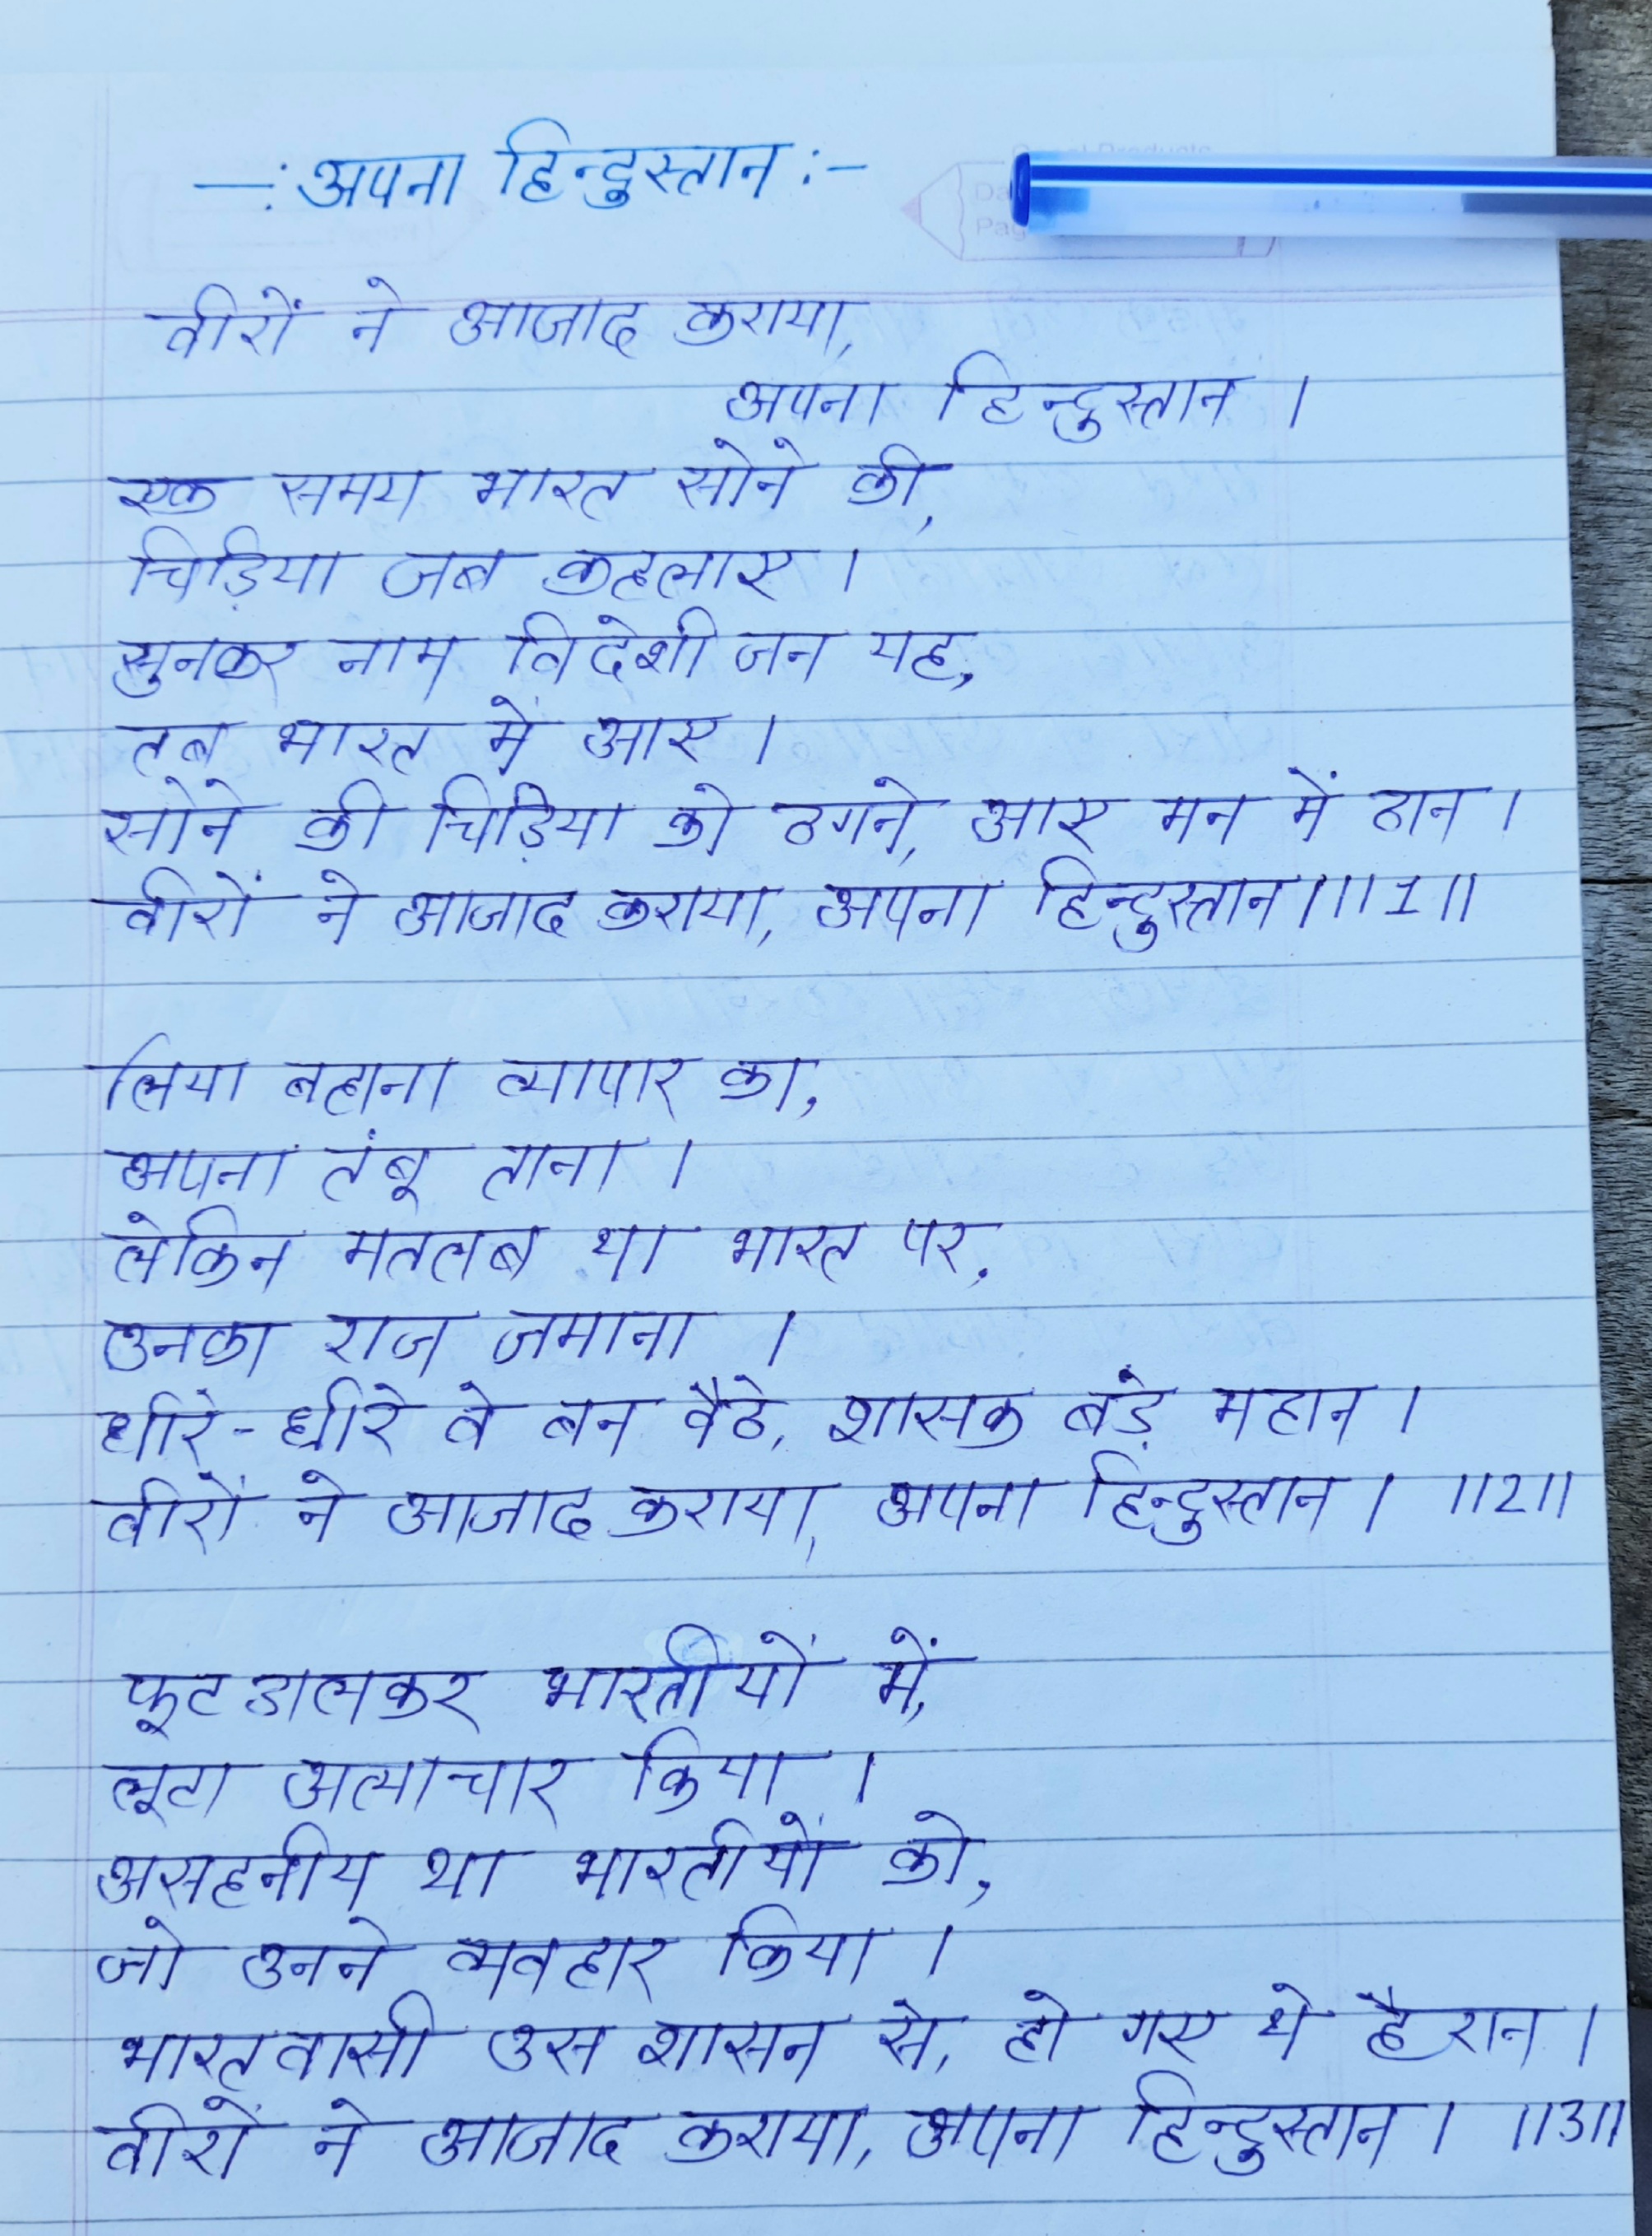 —: अपना हिन्दुस्तान :—
वीरों ने आजाद कराया,
अपना हिन्दुस्तान ।
एक समय भारत सोने की,
चिड़िया जब कहलाए ।
सुनकर नाम विदेशी जन यह,
तब भारत में आए ।
सोने की चिड़िया को ठगने, आए मन में ठान ।
वीरों ने आजाद कराया, अपना हिन्दुस्तान । ॥1॥
लिया बहाना व्यापार का,
अपना तंबू ताना ।
लेकिन मतलब था भारत पर,
उनका राज जमाना ।
धीरे-धीरे वे बन बैठे, शासक बड़े महान ।
वीरों ने आजाद कराया, अपना हिन्दुस्तान । ॥2॥
फूट डालकर भारतीयों में,
लूटा अत्याचार किया ।
असहनीय था भारतीयों को,
जो उनने व्यवहार किया ।
भारतवासी उस शासन से, हो गए थे हैरान ।
वीरों ने आजाद कराया, अपना हिन्दुस्तान । ॥3॥